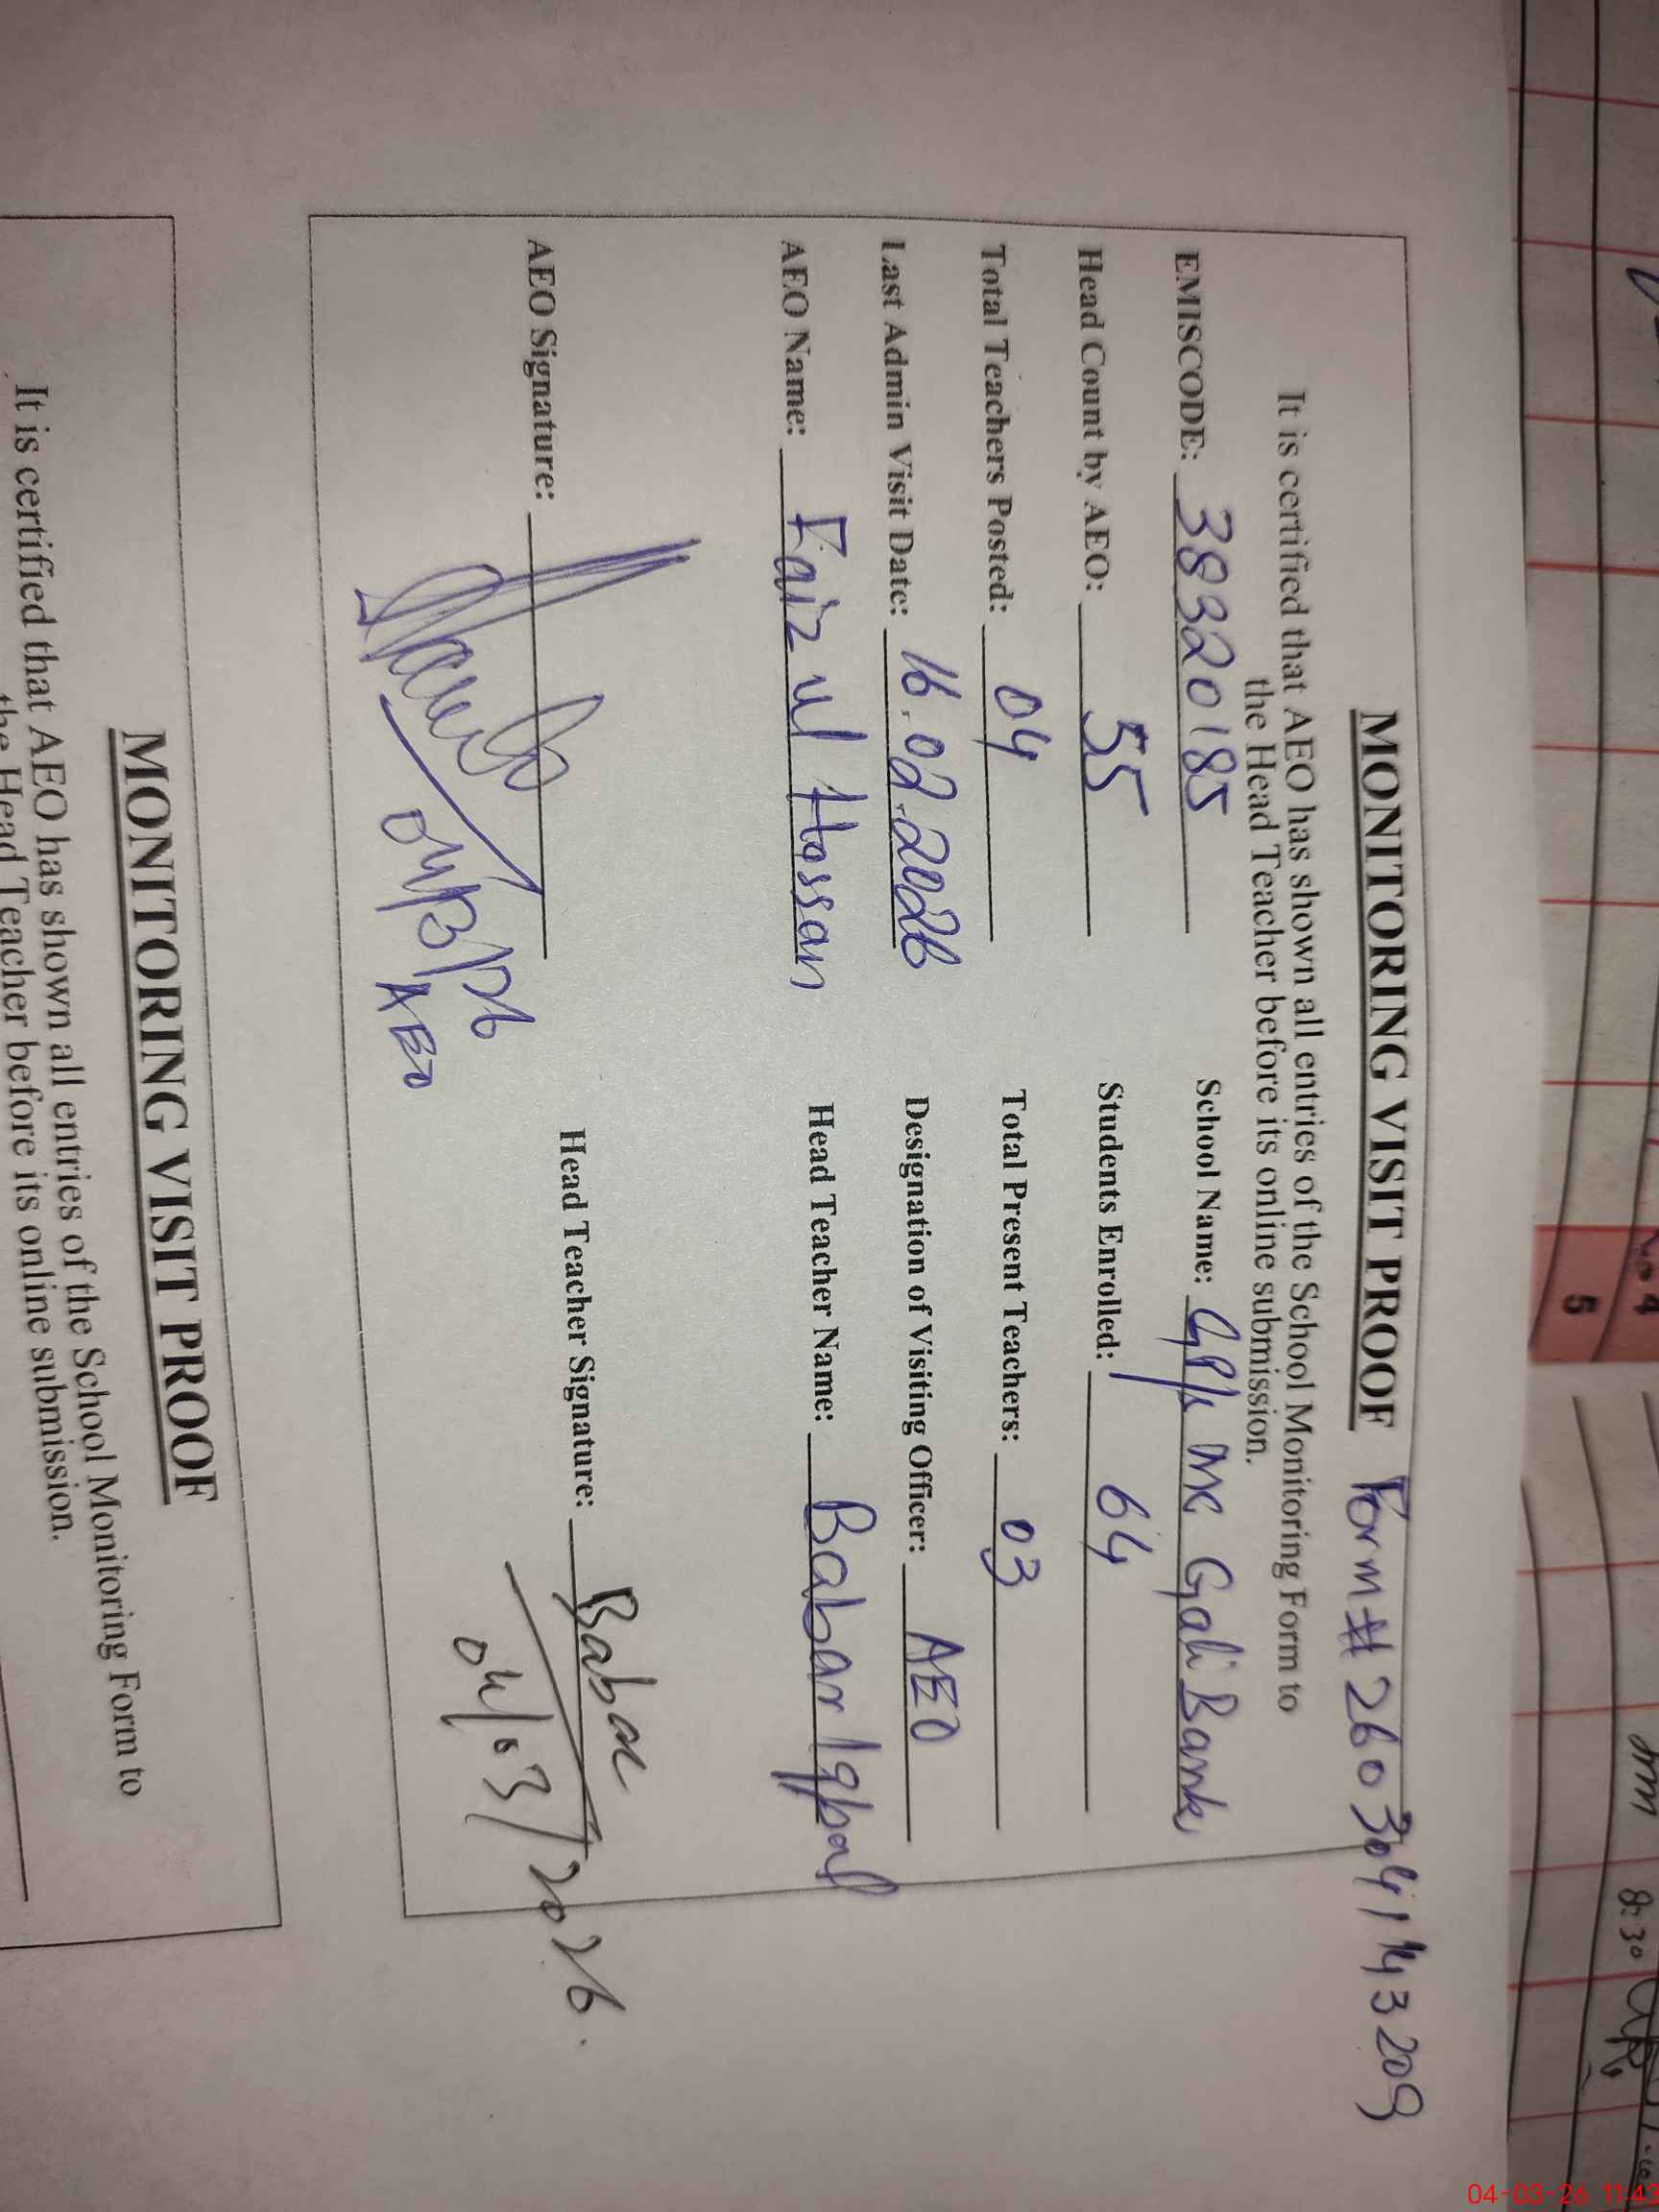 MONITORING VISIT PROOF Form # 2603041143209
It is certified that AEO has shown all entries of the School Monitoring Form to
the Head Teacher before its online submission.
EMISCODE: 38320185 School Name: GP/s MC Gali Bank
Head Count by AEO: 55 Students Enrolled: 64
Total Teachers Posted: 04 Total Present Teachers: 03
Last Admin Visit Date: 16.02.2026 Designation of Visiting Officer: AEO
AEO Name: Faiz ul Hassan Head Teacher Name: Babar Iqbal
AEO Signature: Head Teacher Signature: Babar
04/3/26 04/03/2026.
AEO
MONITORING VISIT PROOF
It is certified that AEO has shown all entries of the School Monitoring Form to
the Head Teacher before its online submission.
4
5
8:30
04-03-26 11:43